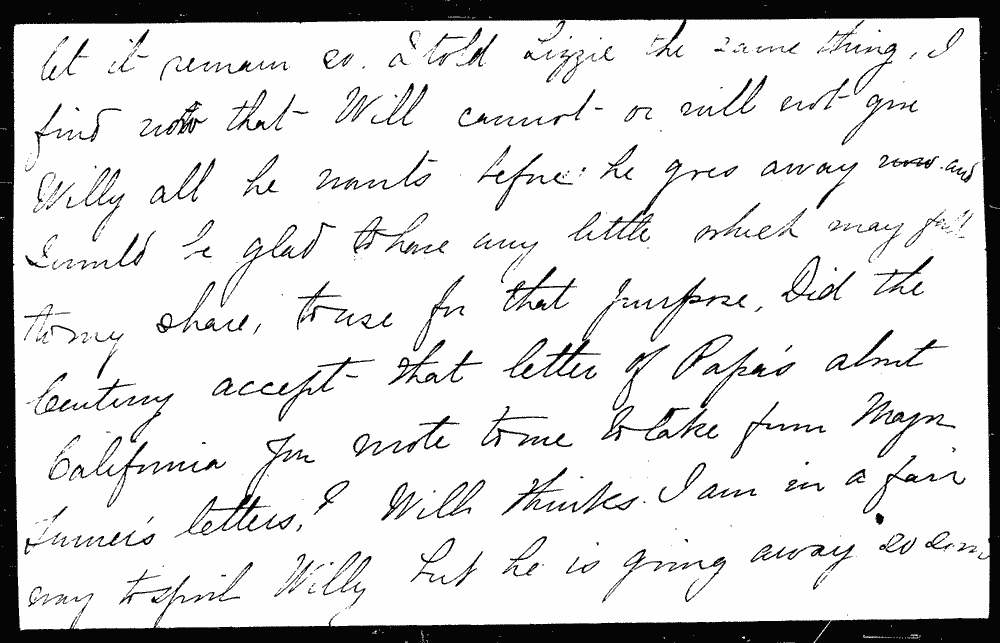 let it remain so. I told Lizzie the same thing, I
find now that Will cannot or will not give
Willy all he wants before he goes away now and
I would be glad to have any little which may fall
to my share, to use for that purpose, Did the
Century accept that letter of Papa's about
California you wrote to me to take from Major
Turner's letters? Will thinks I am in a fair
way to spoil Willy but he is going away so soon